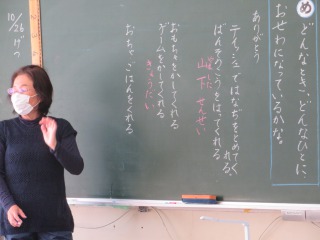 め どんなとき、どんなひとに、
おせわになっているかな。
ありがとう
ティッシュではなぢをとめてくれる
ばんそうこうをはってくれる
山下先せい
おもちゃをかしてくれる
ゲームをかしてくれる
きょうだい
おちゃ、ごはんをくれる
10/26 げつ